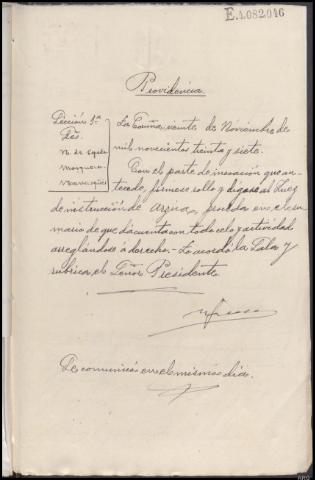 E.1.082.046
Providencia
Sección 1.ª
Sres.
La Coruña, veinte de Noviembre de
mil novecientos treinta y siete.
Con el parte de incoación que an-
tecede, fórmese rollo y dígase al Juez
de instrucción de Arzúa, proceda en el su-
mario de que da cuenta con todo celo y actividad
arreglándose a derecho.- Lo acordó la Sala y
rubrica el Señor Presidente
Se comunicó en el mismo día.